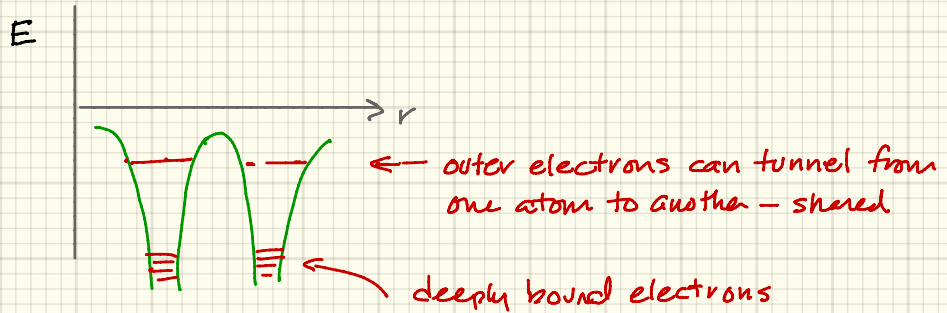 E
r
outer electrons can tunnel from
one atom to another – shared
deeply bound electrons